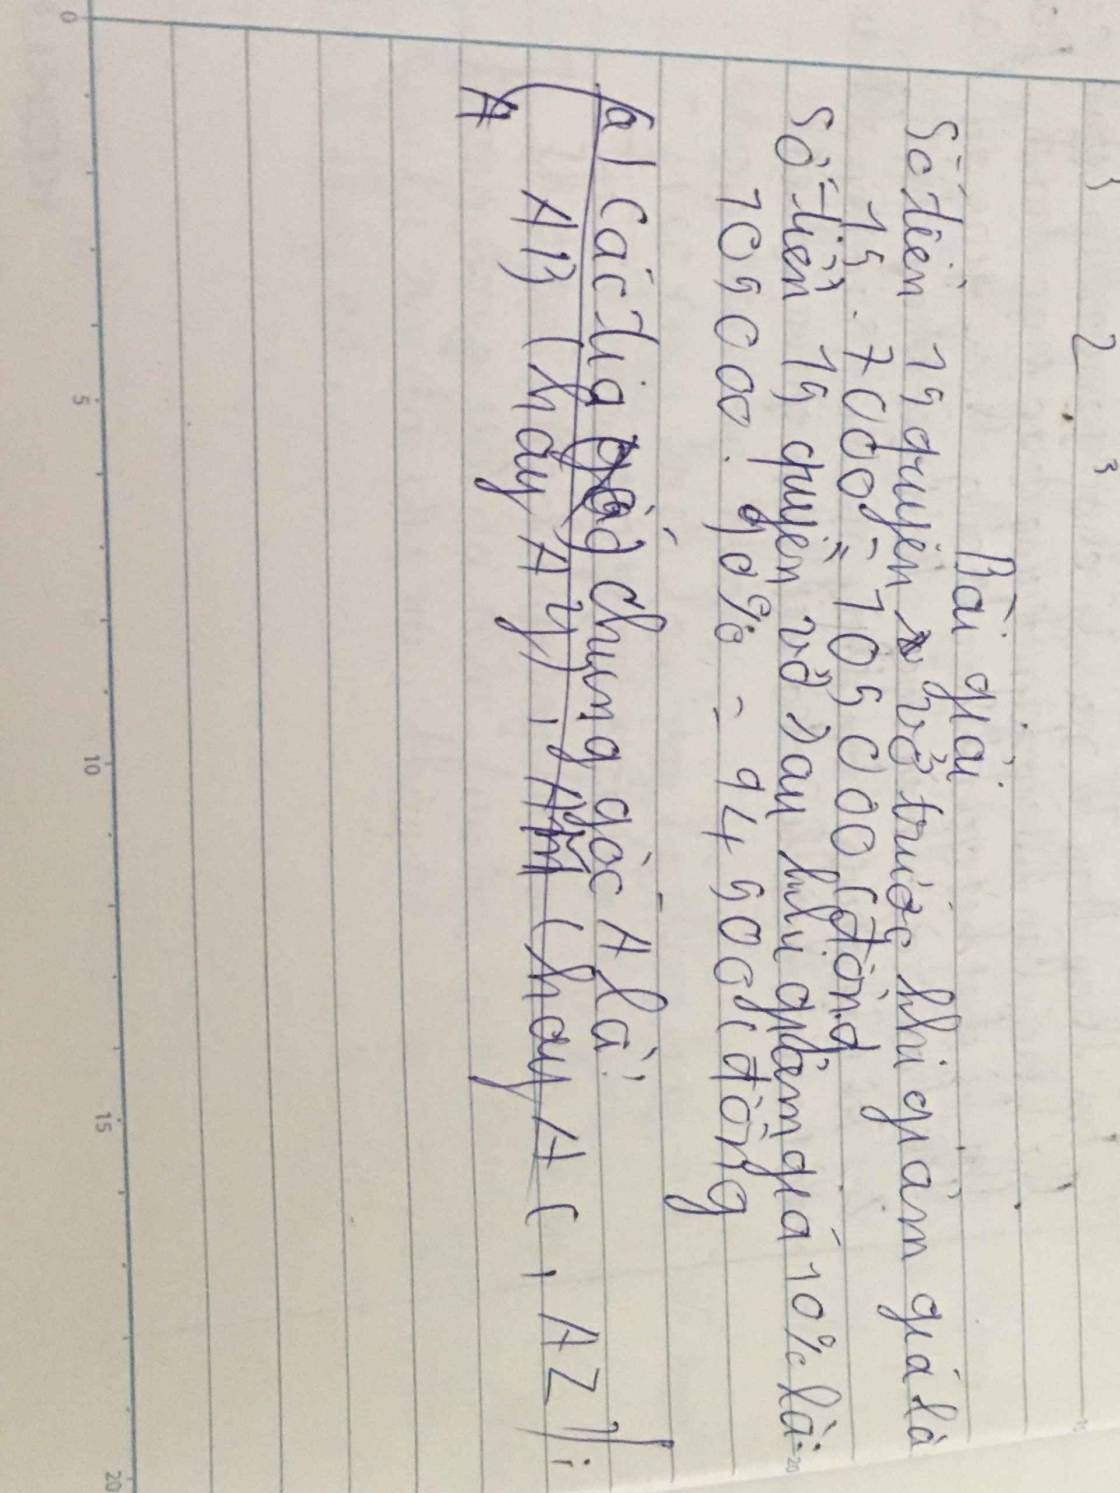 3 2 3
Bài giải
Số tiền 15 quyển vở trước khi giảm giá là
15 . 7000 = 105000 (đồng
Số tiền 15 quyển vở sau khi giảm giá 10% là:
105000 . 90% = 94500 (đồng
a) Các tia gốc chung gốc A là:
AB (hay Ay), Am (hay AC, AZ);
A
0 5 10 15 20